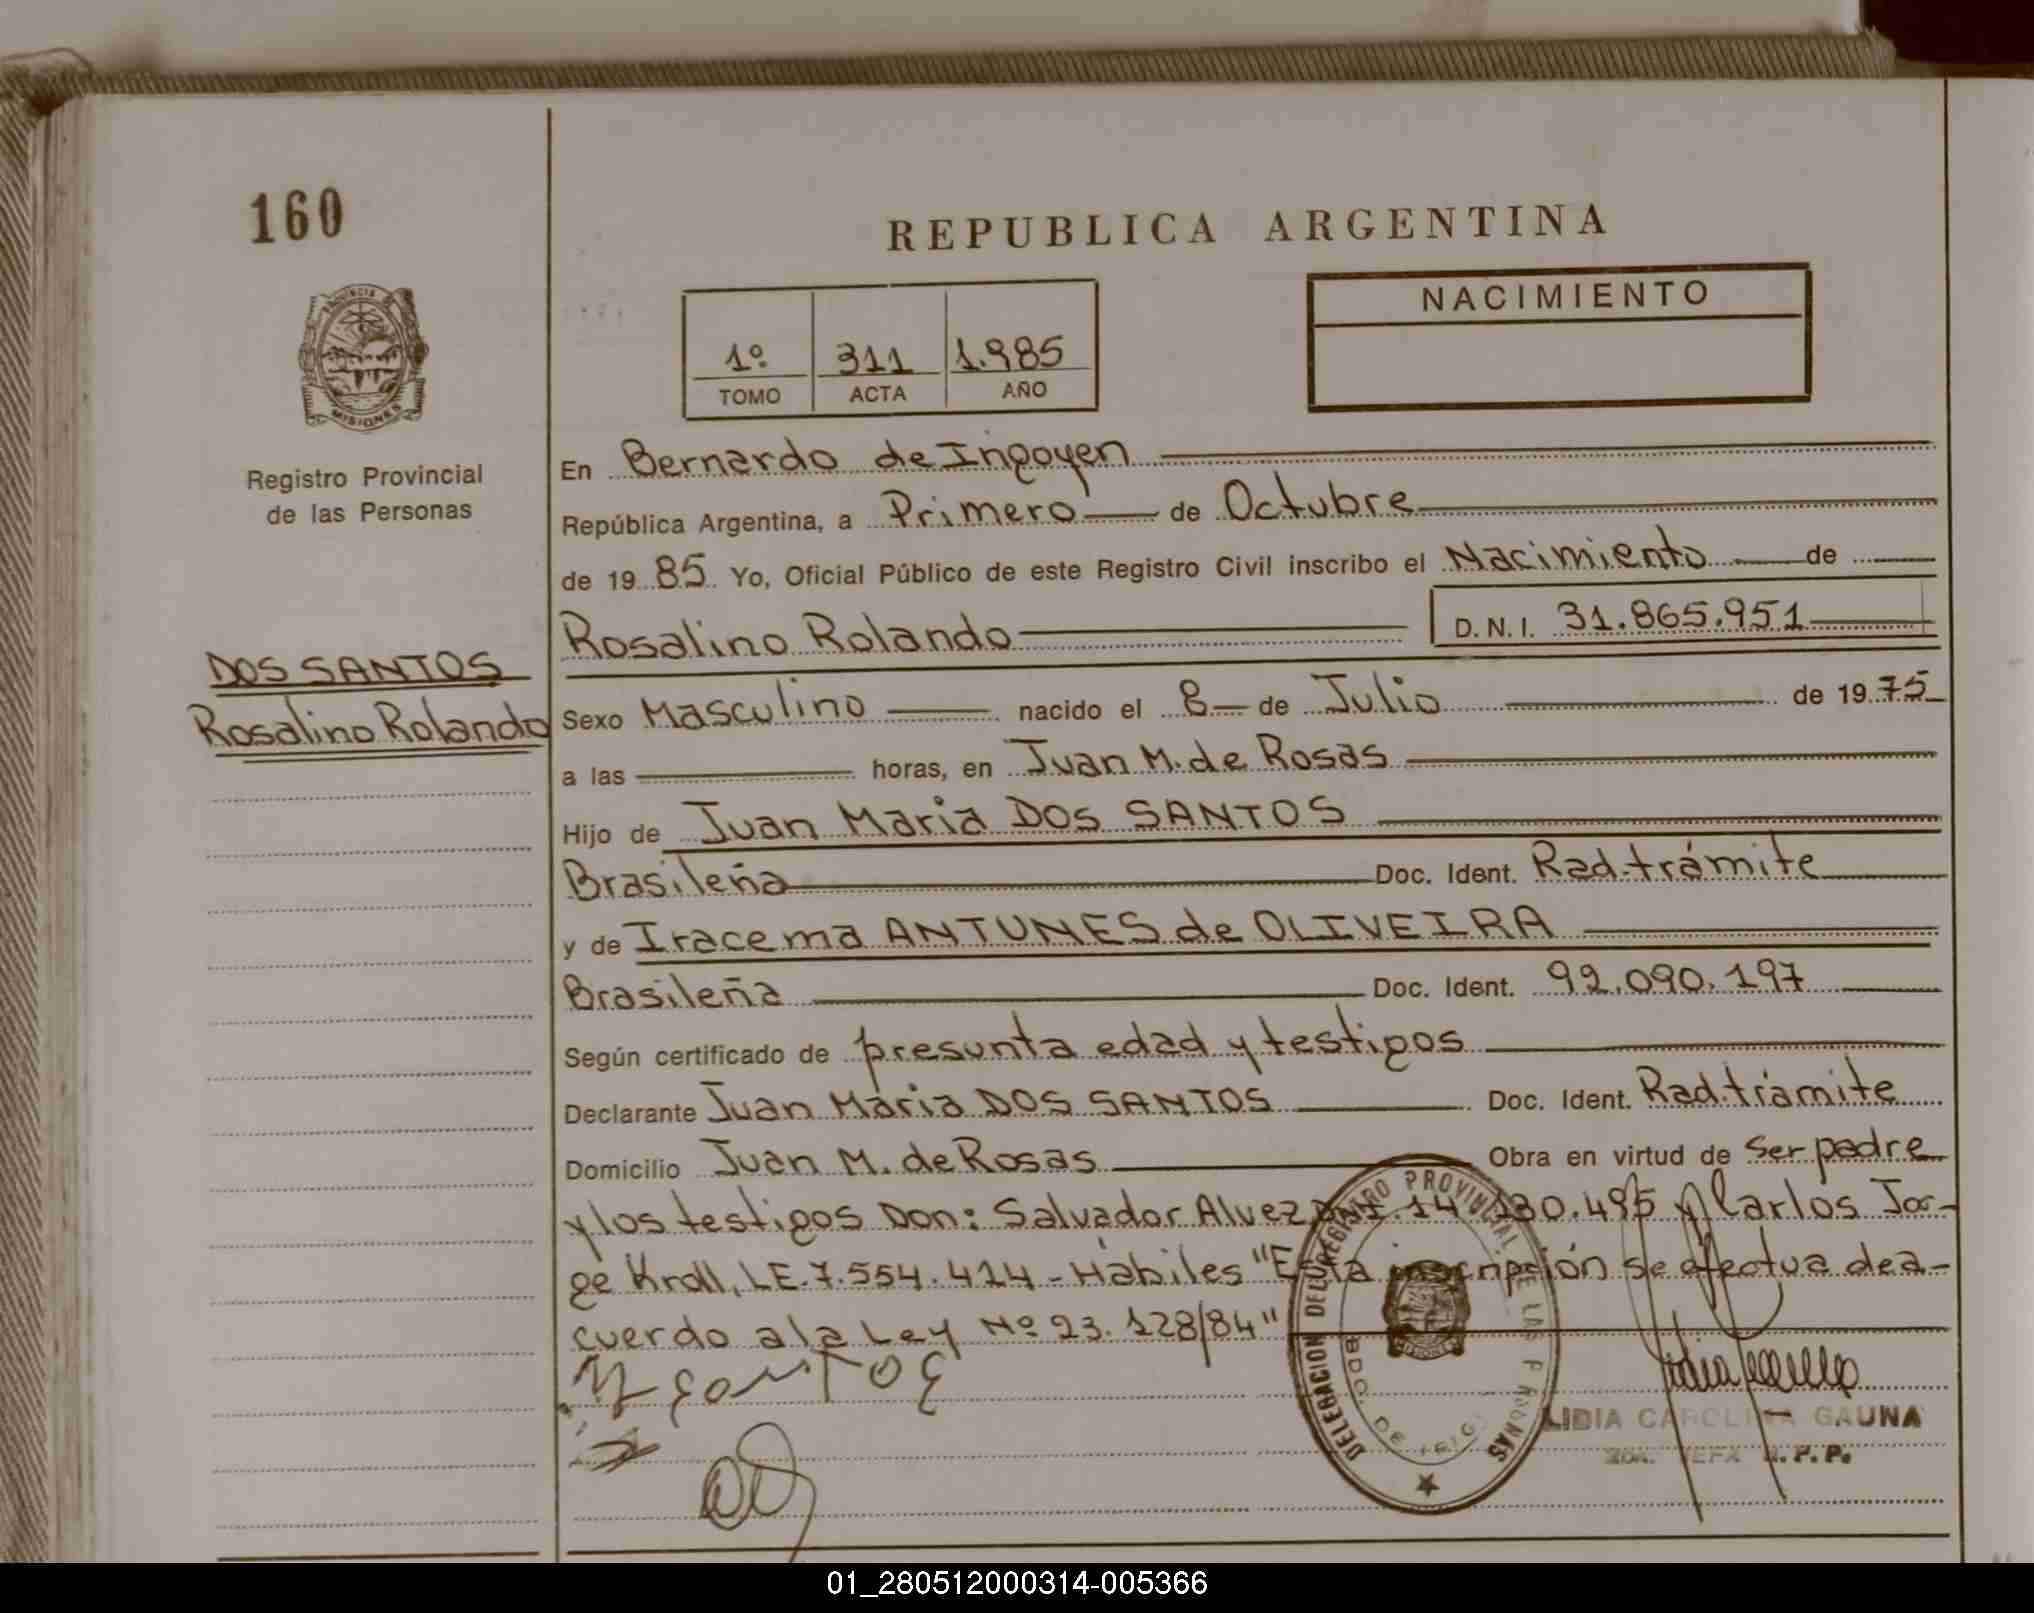 160
REPUBLICA ARGENTINA
NACIMIENTO
1º 311 1.985
TOMO ACTA AÑO
PROVINCIA DE
MISIONES
Registro Provincial
de las Personas
DOS SANTOS
Rosalino Rolando
En Bernardo de Irigoyen
República Argentina, a Primero de Octubre
de 1985 Yo, Oficial Público de este Registro Civil inscribo el Nacimiento de
Rosalino Rolando D.N.I. 31.865.951
Sexo Masculino nacido el 8 de Julio de 1975
a las horas, en Juan M. de Rosas
Hijo de Juan Maria DOS SANTOS
Brasileña Doc. Ident. Rad.trámite
y de Iracema ANTUNES de OLIVEIRA
Brasileña Doc. Ident. 92.090.197
Según certificado de presunta edad y testigos
Declarante Juan Maria DOS SANTOS Doc. Ident. Rad.trámite
Domicilio Juan M. de Rosas Obra en virtud de ser padre
y los testigos Don: Salvador Alvez DNI. 14 130.495 y Carlos Jor-
ge Kroll, LE.7.554.414 - Hábiles "Esta inscripción se efectua de a-
cuerdo a la Ley Nº 23.128/84"
DELEGACION DEL REGISTRO PROVINCIAL DE LAS PERSONAS
BDO. DE
MISIONES
LIDIA CAROLINA GAUNA
JEFA R.P.P.
01_280512000314-005366